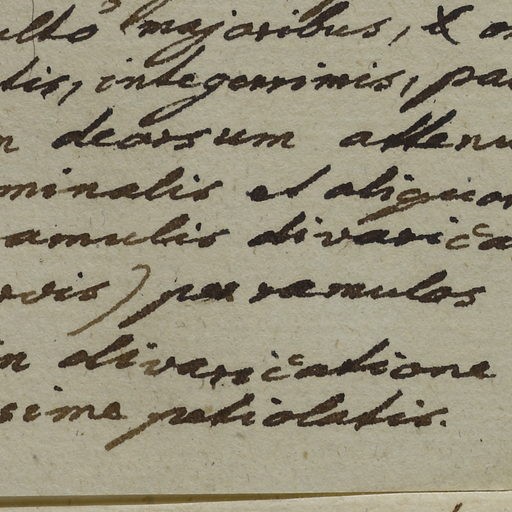 ulto majoribus, & o
tis, integerrimis, pa
n deorsum attenu
minalis et aliquo
amulis divarica
vis) per ramulos
in divaricatione
sime petiolatis.